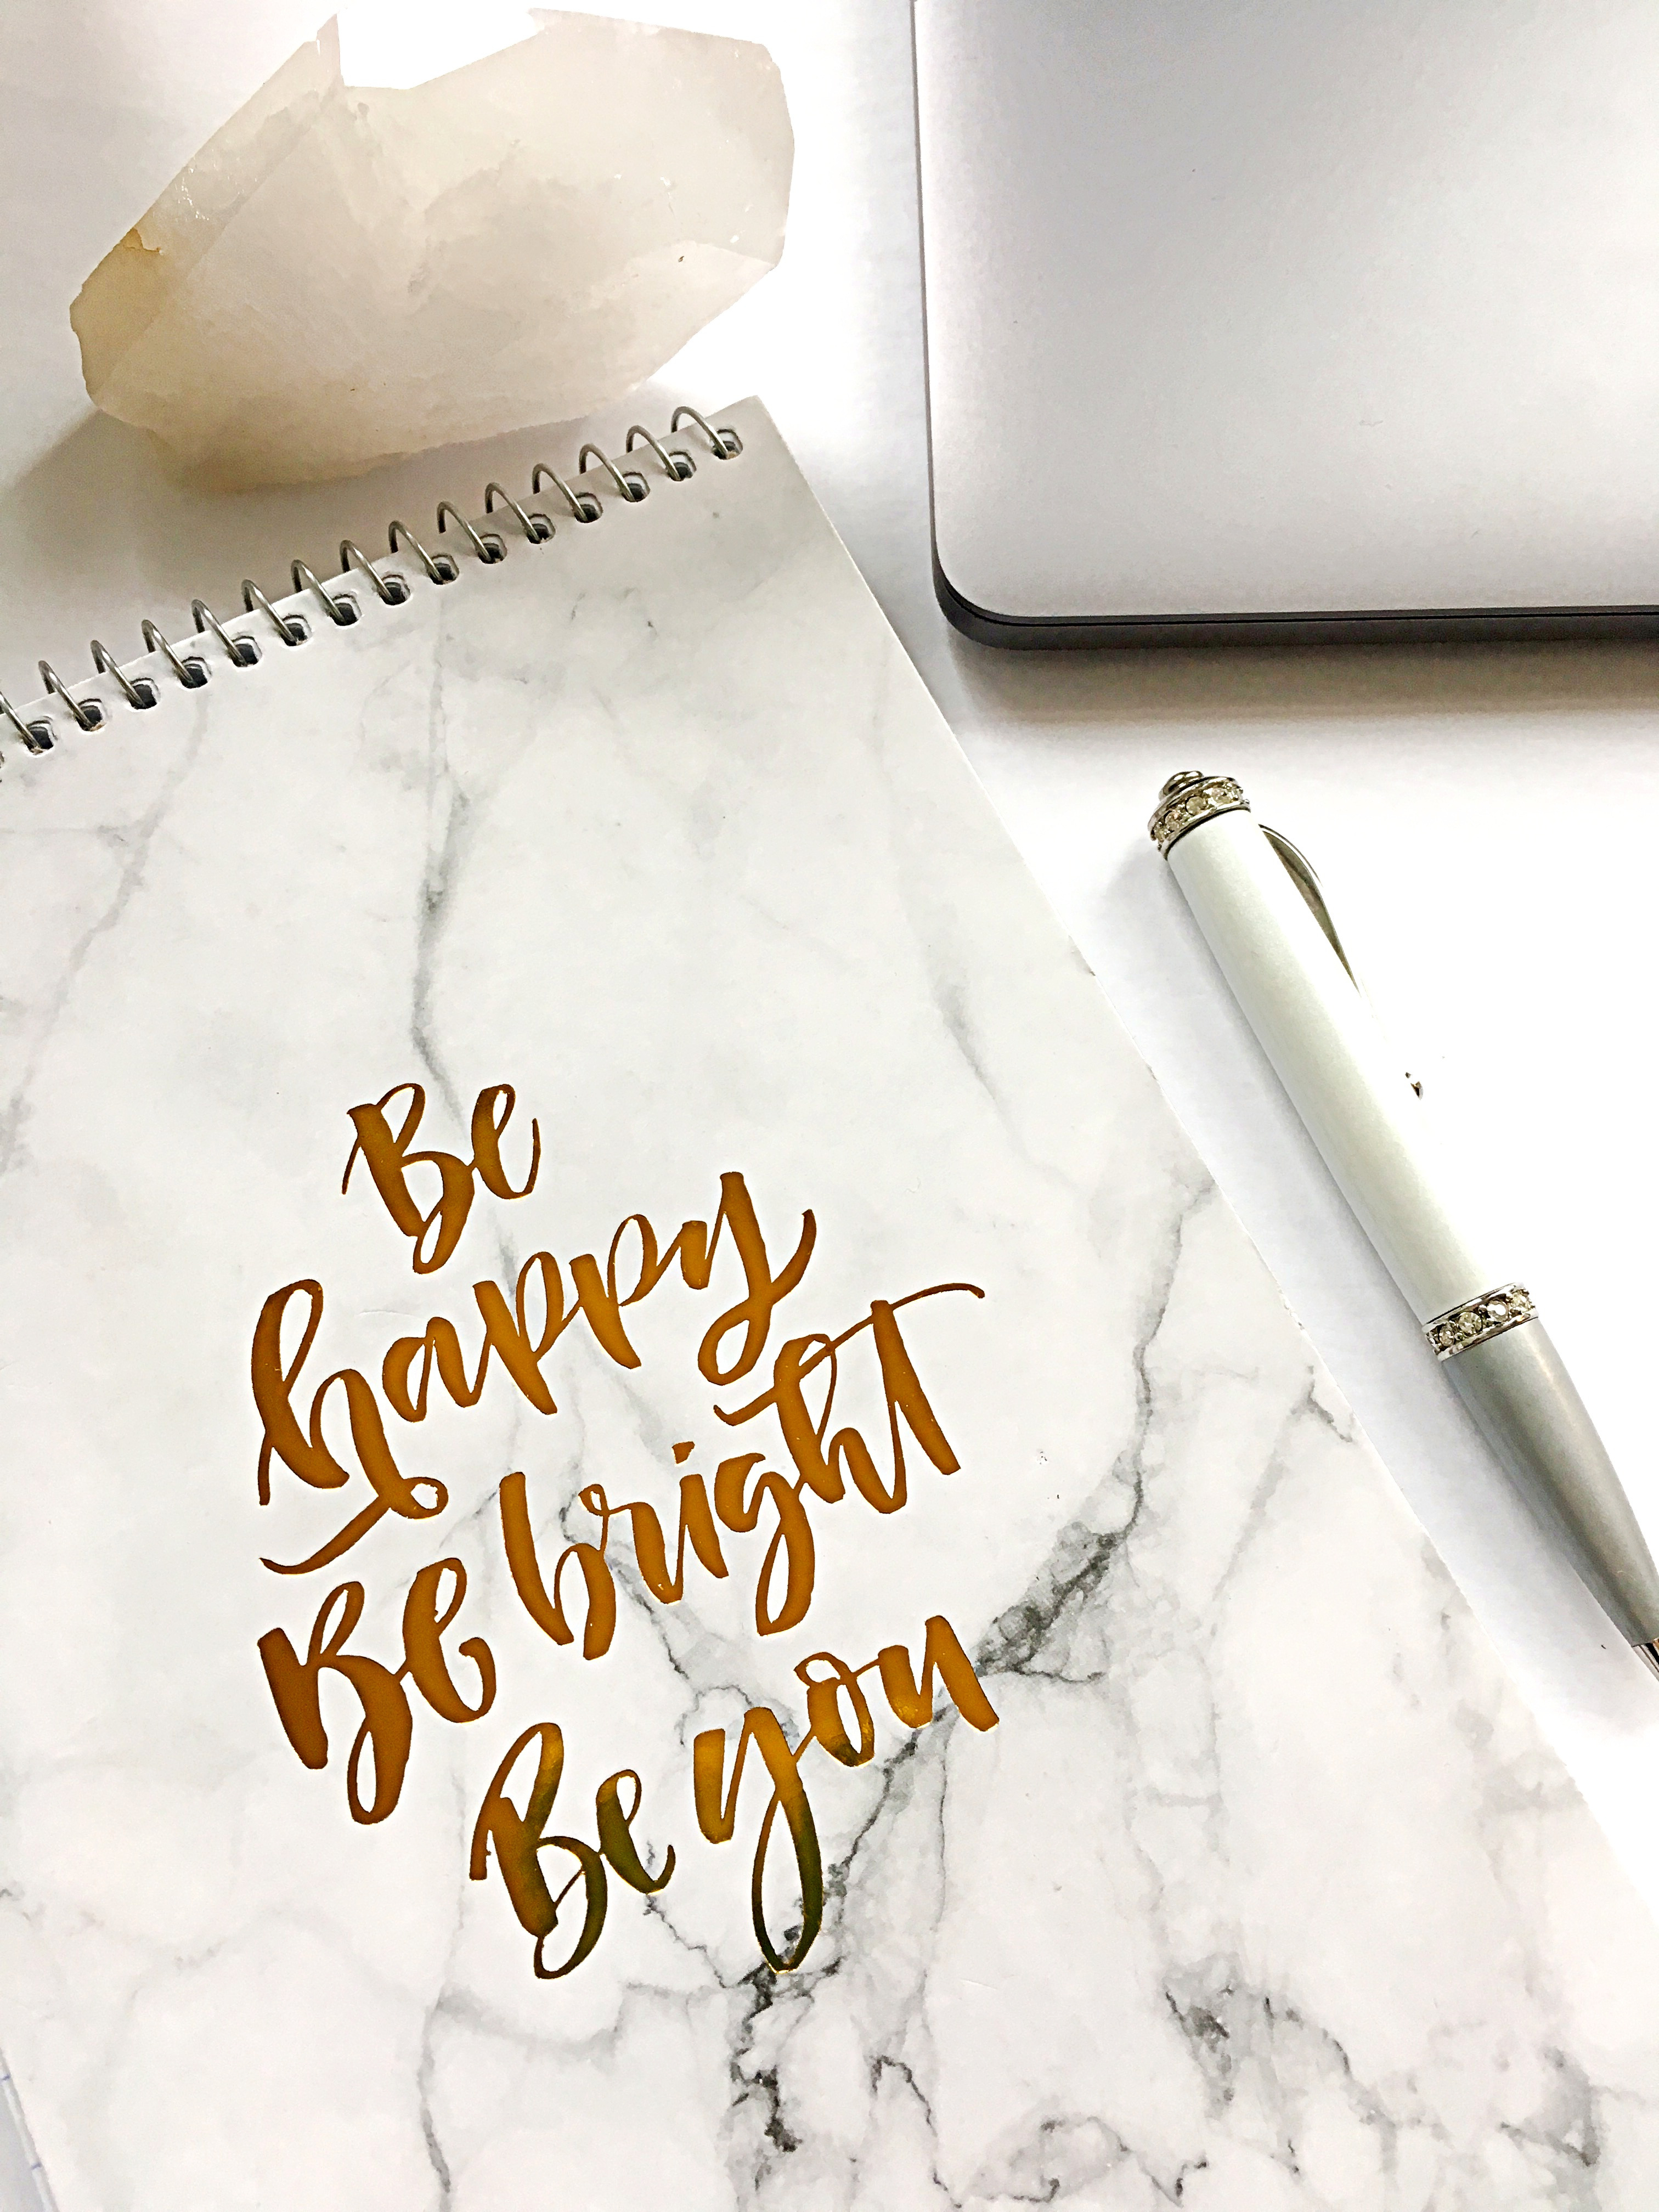 Be
happy
Be bright
Be you